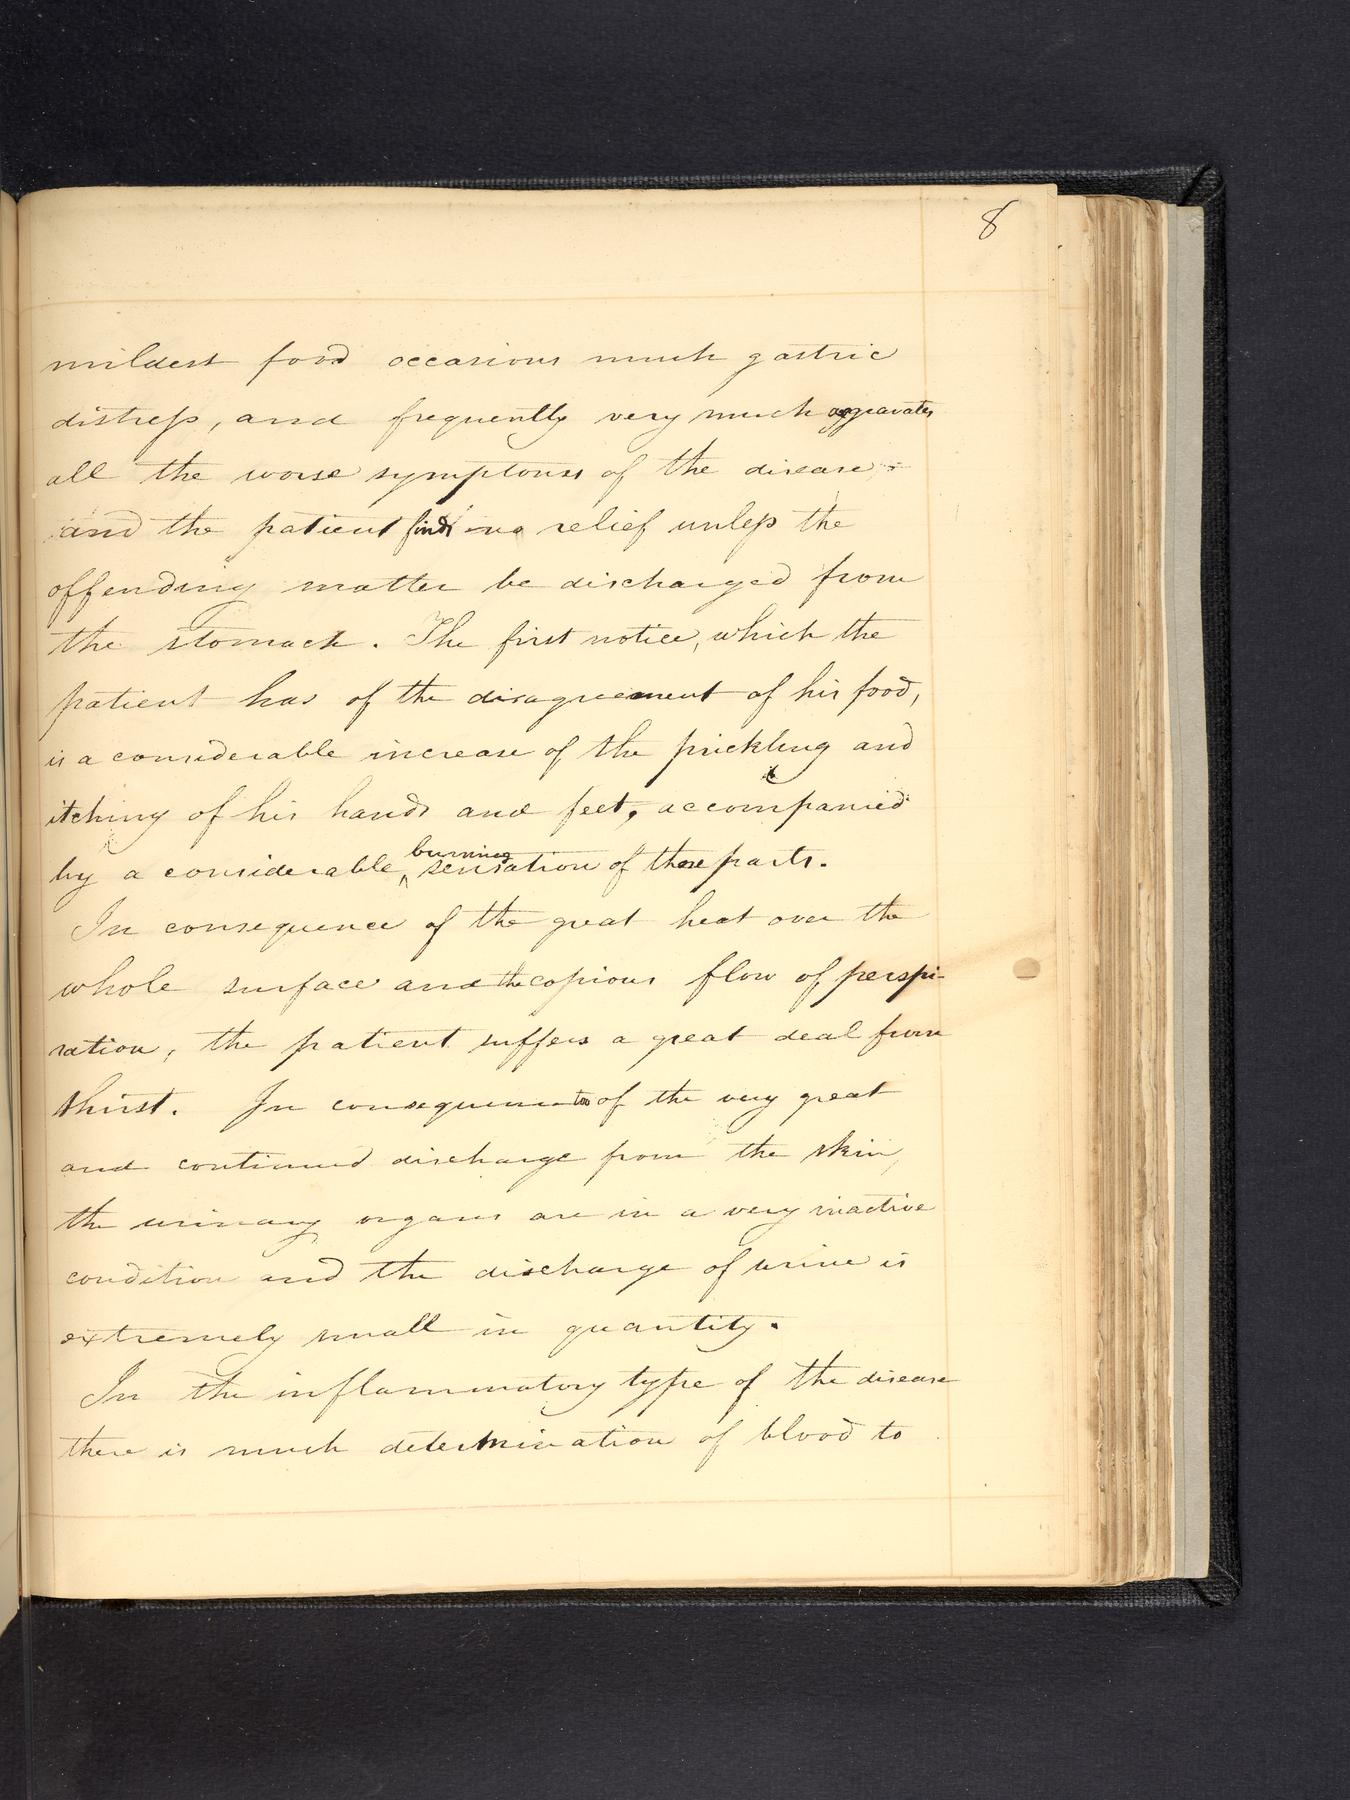 8
mildest food occasions much gastric
distress, and frequently very much aggravates
all the worse symptoms of the disease
and the patient finds no relief unless the
offending matter be discharged from
the stomach. The first notice, which the
patient has of the disagreement of his food,
is a considerable increase of the prickling and
itching of his hands and feet, accompanied
by a considerable burning sensation of those parts.
In consequence of the great heat over the
whole surface and the copious flow of perspi-
ration, the patient suffers a great deal from
thirst. In consequence too of the very great
and continued discharge from the skin,
the urinary organs are in a very inactive
condition and the discharge of urine is
extremely small in quantity.
In the inflammatory type of the disease
there is much determination of blood to